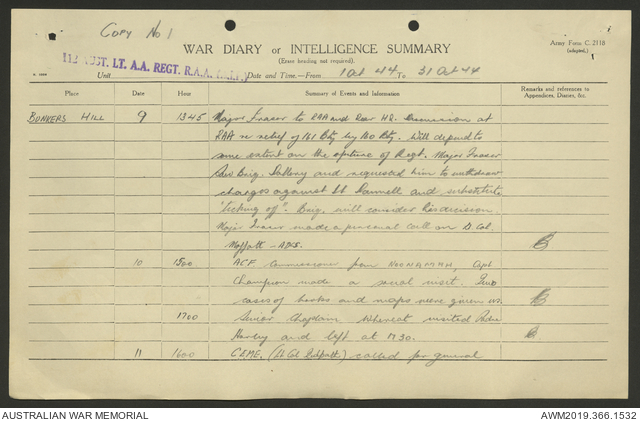 Copy No 1
WAR DIARY or INTELLIGENCE SUMMARY
Army Form C. 2118
(adapted.)
(Erase heading not required).
112 LT. A.A. REGT. R.A.A.
Unit
Date and Time—From 1 Oct 44 To 31 Oct 44
Place Date Hour Summary of Events and Information Remarks and references to
Appendices, Diaries, &c.
BUNKERS HILL 9 1345 Major Fraser to RAA and Rear HQ. Discussion at
RAA re relief of 161 Bty by 160 Bty. Will depend to
some extent on the future of Regt. Major Fraser
Brig. and requested him to withdraw
charges against Lt and substitute
"ticking off". Brig. will consider his decision.
Major Fraser made a personal call on Lt. Col.
Moffatt - ADS.
10 1500 ACF Commissioner from NOONAMAH, Capt
Champion made a social visit. Two
cases of books and maps were given us.
1700 Senior Chaplain visited Padre
and left at 1730.
11 1600 CEME. (Lt Col ) called for general
AUSTRALIAN WAR MEMORIAL
AWM2019.366.1532